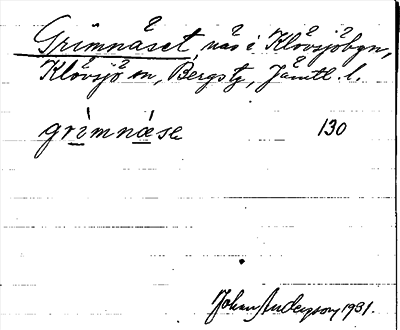 Grimnäset, näs i Klövsjöbyn,
Klövsjö sn, Bergs tg, Jämtl. l.
grìmnǽse 130
Johan Anderson 1931.